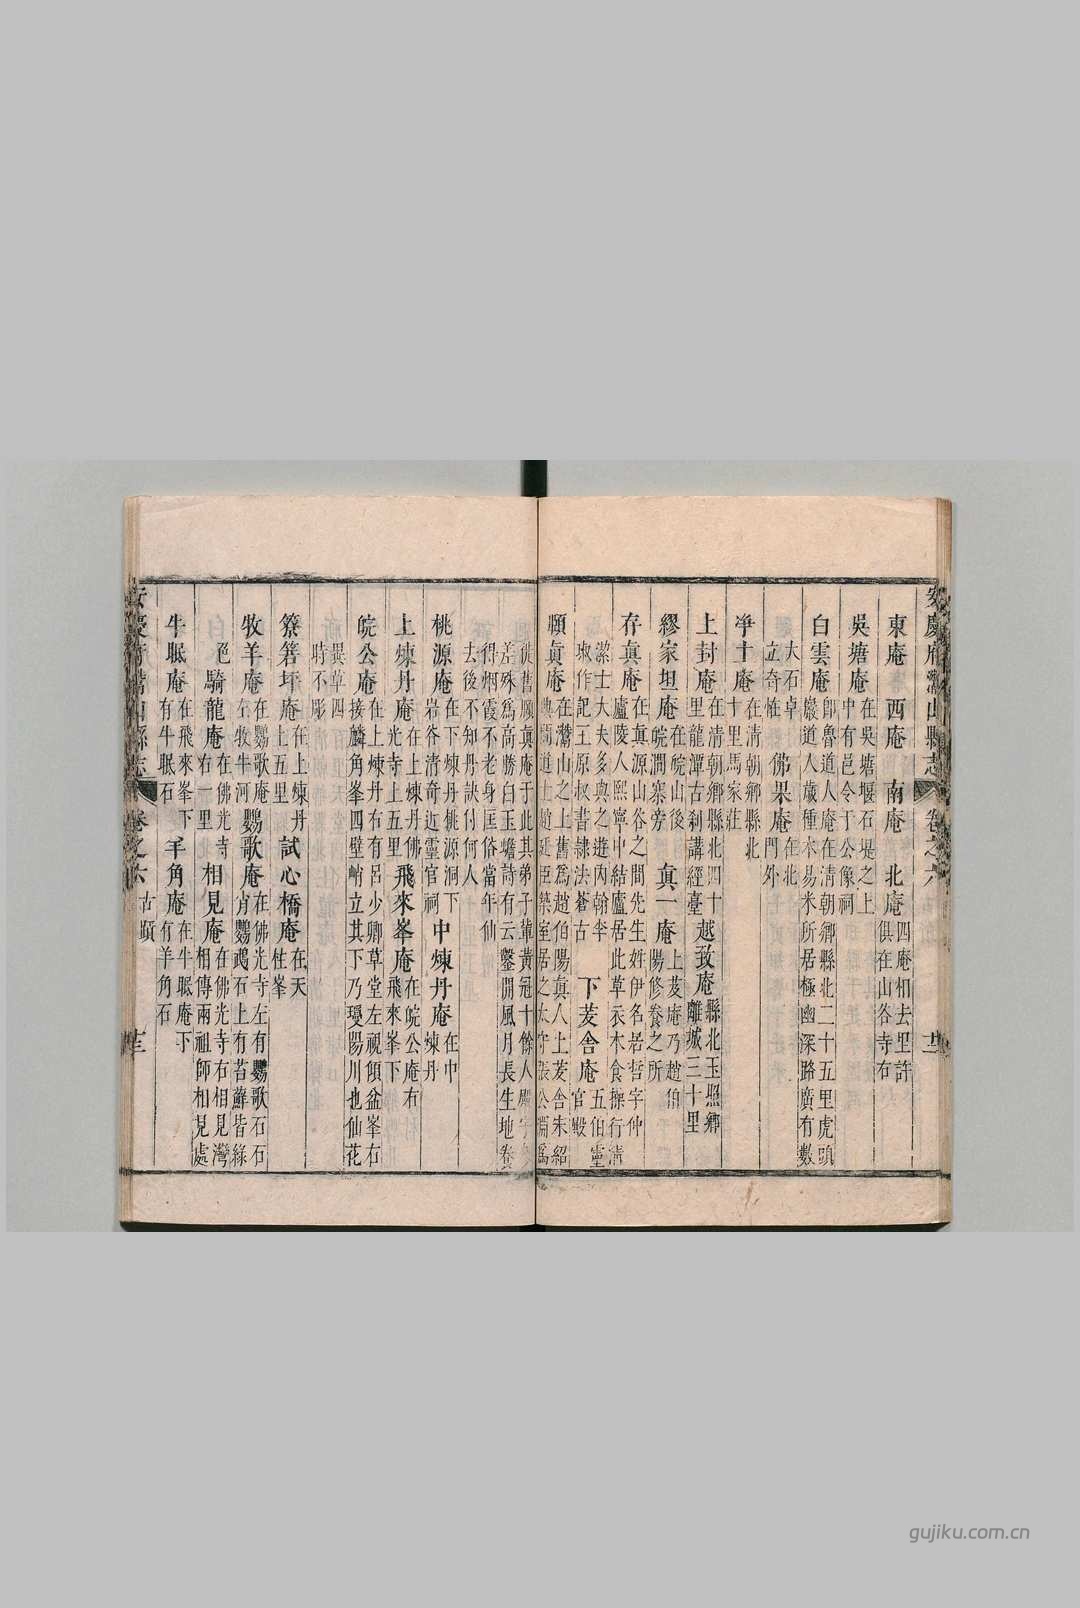 安慶府灊山縣志 卷之六
東庵 西庵 南庵 北庵 四庵相去里許
俱在山谷寺右
吳塘庵 在吳塘堰石堤之上
中有邑令于公像祠
白雲庵 即魯道人庵在清朝鄉縣北二十五里虎頭
巖道人歲種木易米所居極幽深路廣有數
大石卓
立奇怪 佛果庵 在北
門外
淨土庵 在清朝鄉縣北
十里馬家莊
上封庵 在清朝鄉縣北四十
里龍潭古刹講經臺 越致庵 縣北玉照鄉
離城三十里
繆家坦庵 在皖山後
皖澗寨旁 真一庵 上茇庵乃趙伯
陽修養之所
存真庵 在真源山谷之間先生姓伊名君哲字仲
廬陵人熙寧中結廬居此草衣木食操行清
潔士大夫多與之遊內翰李
作記王原叔書隸法蒼古 下茇舍庵 五伯靈
官殿
願真庵 在灊山之上舊爲趙伯陽真人上茇舍朱紹
典間道士趙延臣築室居之太守張公淵爲
徙舊願真庵于此其弟子輩黃冠十餘人
差殊爲高勝白玉蟾詩有云鑿開風月長生地
得烟霞不老身匡俗當年仙
去後不知丹訣付何人
桃源庵 在下煉丹桃源洞下
岩谷清奇近靈官祠 中煉丹庵 在中
煉丹
上煉丹庵 在上煉丹佛
光寺上五里 飛來峯庵 在皖公庵右
飛來峯下
皖公庵 在上煉丹有呂少卿草堂左視傾盆峯右
接麟角峯四壁峭立其下乃璎陽川也仙花
異草四
時不彫
簝箬坪庵 在上煉丹
上五里 試心橋庵 在天
柱峯
牧羊庵 在鸚歌庵
左牧牛河 鸚歌庵 在佛光寺左有鸚歌石石
肖鸚鵡石上有苔蘚皆綠
色 騎龍庵 在佛光寺
右一里 相見庵 在佛光寺右相見灣
相傳兩祖師相見處
牛眠庵 在飛來峯下
有牛眠石 羊角庵 在牛眠庵下
有羊角石
安慶府灊山縣志 卷之六
gujiku.com.cn